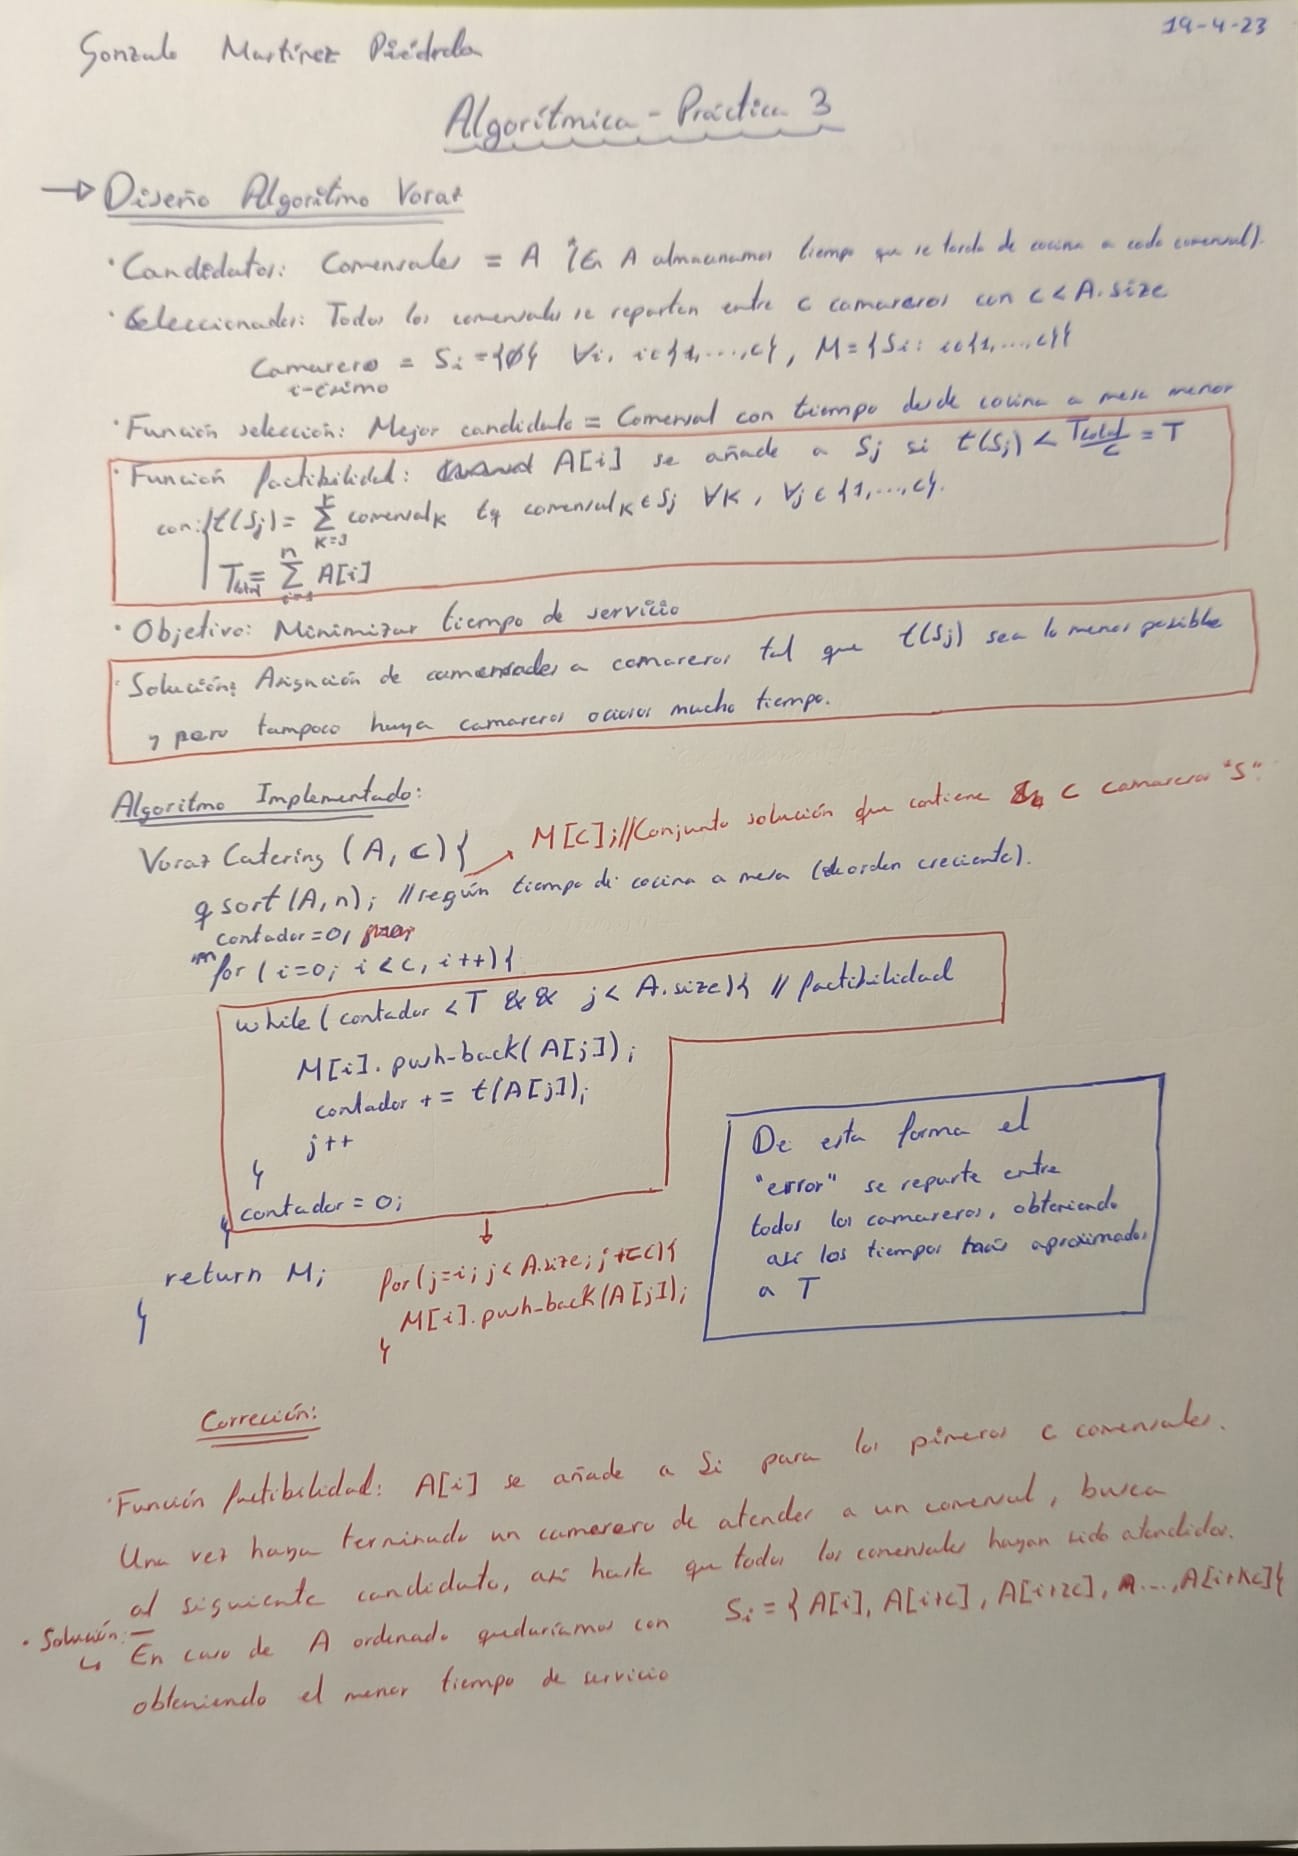 19-4-23
Gonzalo Martínez Piédrola
Algorítmica - Práctica 3
→ Diseño Algoritmo Voraz
· Candidatos: Comensales = A (En A almacenamos tiempo que se tarda de cocina a cada comensal).
· Seleccionados: Todos los comensales se reparten entre c camareros con c < A.size
Camarero = Si = {∅} ∀i, i∈{1,...,c}, M = {Si : i∈{1,...,c}}
i-ésimo
· Función selección: Mejor candidato = Comensal con tiempo desde cocina a mesa menor
· Función factibilidad: A[i] se añade a Sj si t(Sj) < Ttotal/c = T
con: t(Sj) = Σ k=1 k comensalk tq comensalk ∈ Sj ∀k, ∀j ∈ {1,...,c}.
Ttotal = Σ i=1 n A[i]
· Objetivo: Minimizar tiempo de servicio
· Solución: Asignación de comensales a camareros tal que t(Sj) sea lo menor posible
y pero tampoco haya camareros ociosos mucho tiempo.
Algoritmo Implementado:
M[c]; //Conjunto solución que contiene c camareros "S".
Voraz Catering (A, c){
qsort(A, n); //según tiempo de cocina a mesa (de orden creciente).
contador = 0,
for (i=0; i<c, i++){
while (contador < T && j < A.size){ // factibilidad
M[i].push-back(A[j]);
contador += t(A[j]);
j++
}
contador = 0;
}
return M;
}
for (j=i; j<A.size; j+=c){
M[i].push-back(A[j]);
}
De esta forma el
"error" se reparte entre
todos los camareros, obteniendo
así los tiempos más aproximados
a T
Correción:
· Función factibilidad: A[i] se añade a Si para los pimeros c comensales.
Una vez haya terminado un camarero de atender a un comensal, busca
al siguiente candidato, así hasta que todos los comensales hayan sido atendidos.
· Solución:
↳ En caso de A ordenado quedaríamos con Si = {A[i], A[i+c], A[i+2c], ..., A[i+kc]}
obteniendo el menor tiempo de servicio